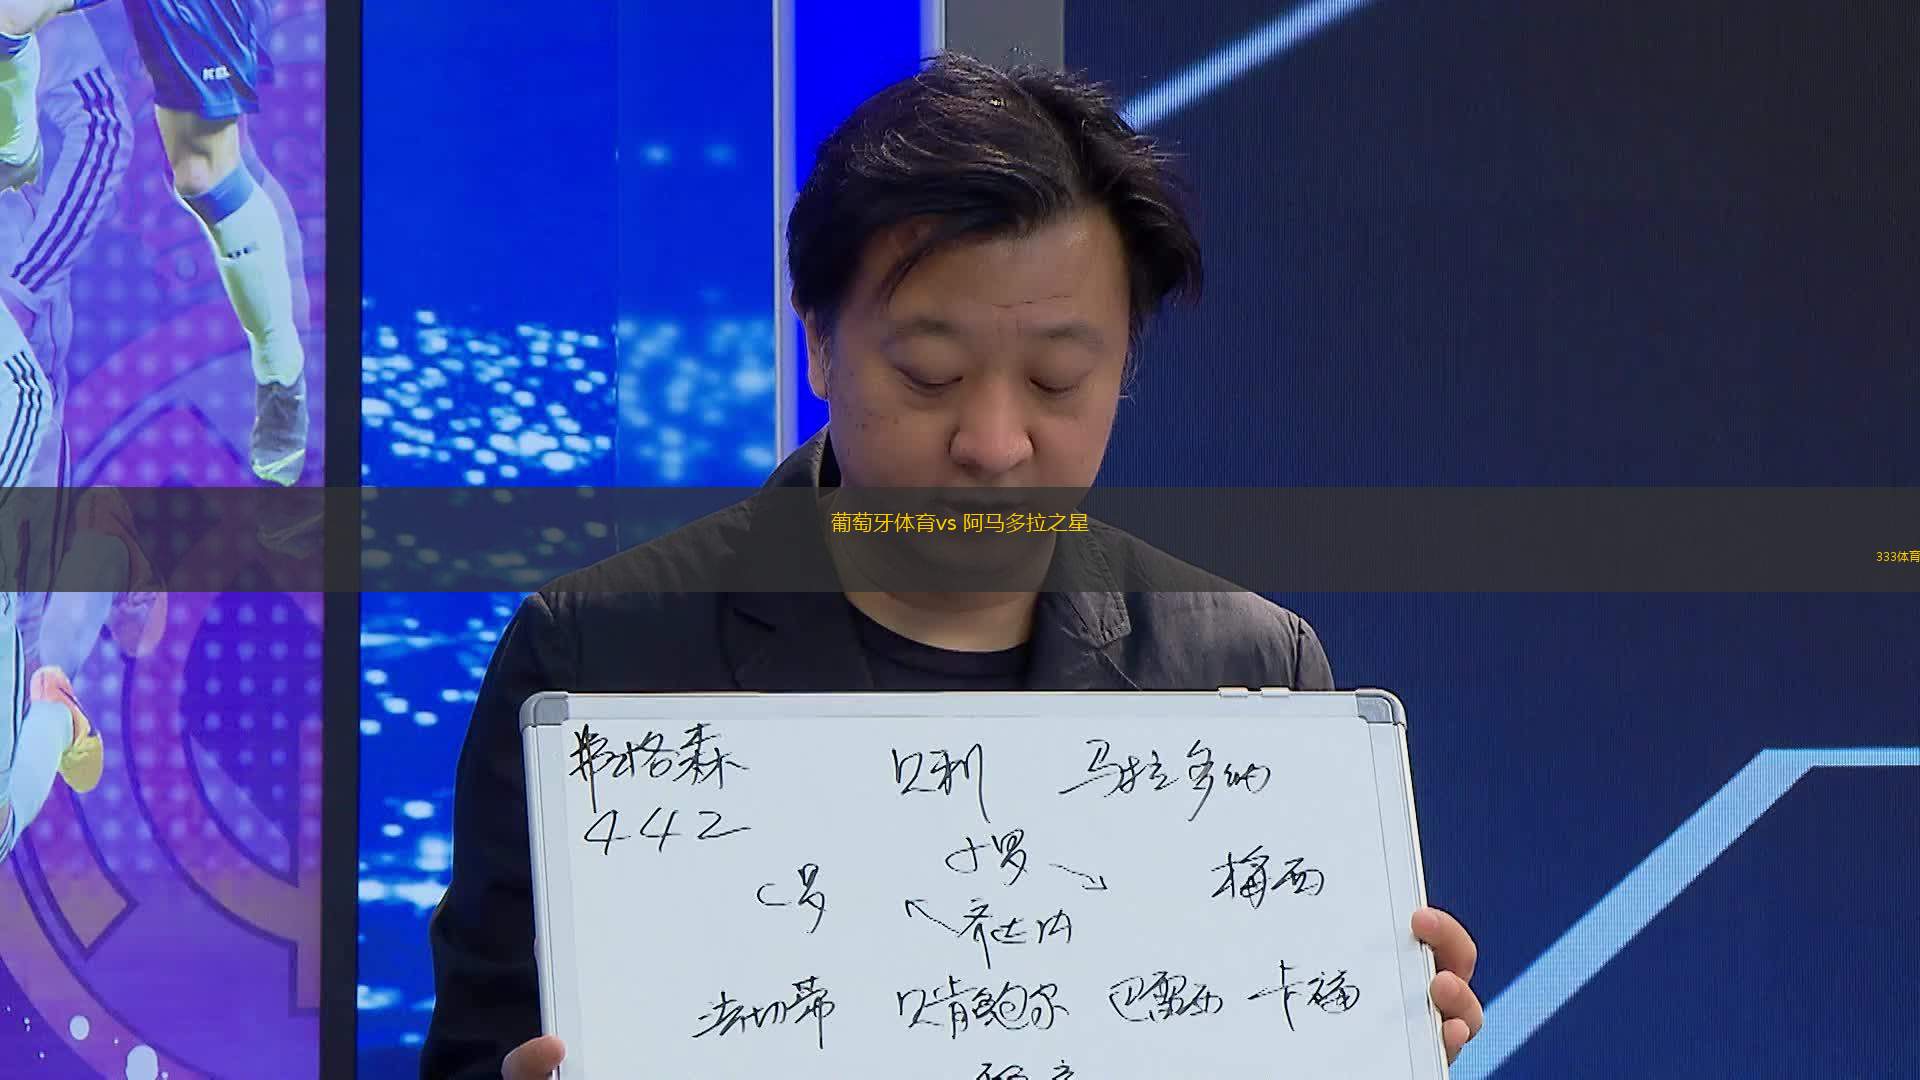 葡萄牙体育vs 阿马多拉之星
333体育
弗格森 贝利 马拉多纳
442
小罗
C罗 梅西
齐达内
法切蒂 贝肯鲍尔 巴雷西 卡福